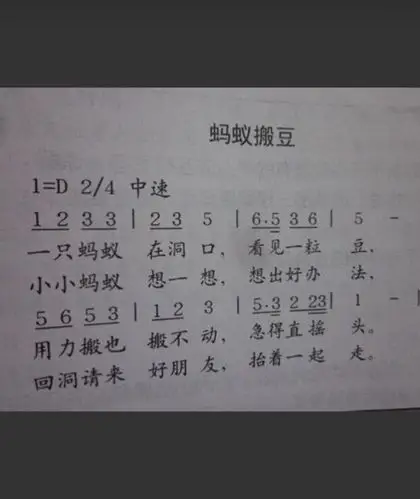 蚂蚁搬豆
1=D 2/4 中速
1 2 3 3 | 2 3 5 | 6·5 3 6 | 5 -
一只蚂蚁 在洞 口， 看见一粒 豆，
小小蚂蚁 想一 想， 想出好办 法，
5 6 5 3 | 1 2 3 | 5·3 2 23 | 1 - |
用力搬也 搬不 动， 急得直摇 头。
回洞请来 好朋 友， 抬着一起 走。